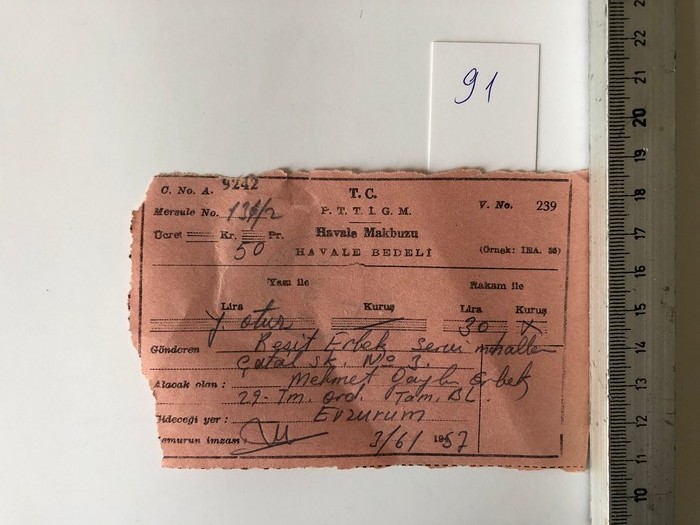 91
C. No. A. 9242
T. C.
Mersule No. 136/2
P. T. T. İ. G. M.
V. No. 239
Ücret Kr. Pr.
50
Havale Makbuzu
HAVALE BEDELİ
(Örnek: IEA. 55)
Yazı ile
Rakam ile
Lira Kuruş Lira Kuruş
Y. otuz 30 X
Gönderen Reşit Erbek Servi mahalle
Çatal sk. No 3.
Alacak olan : Mehmet Erbek
29. Tm. Ord. Tam. BL.
Gideceği yer : Erzurum
emurun imzası
3/6/1957
10 11 12 13 14 15 16 17 18 19 20 21 22